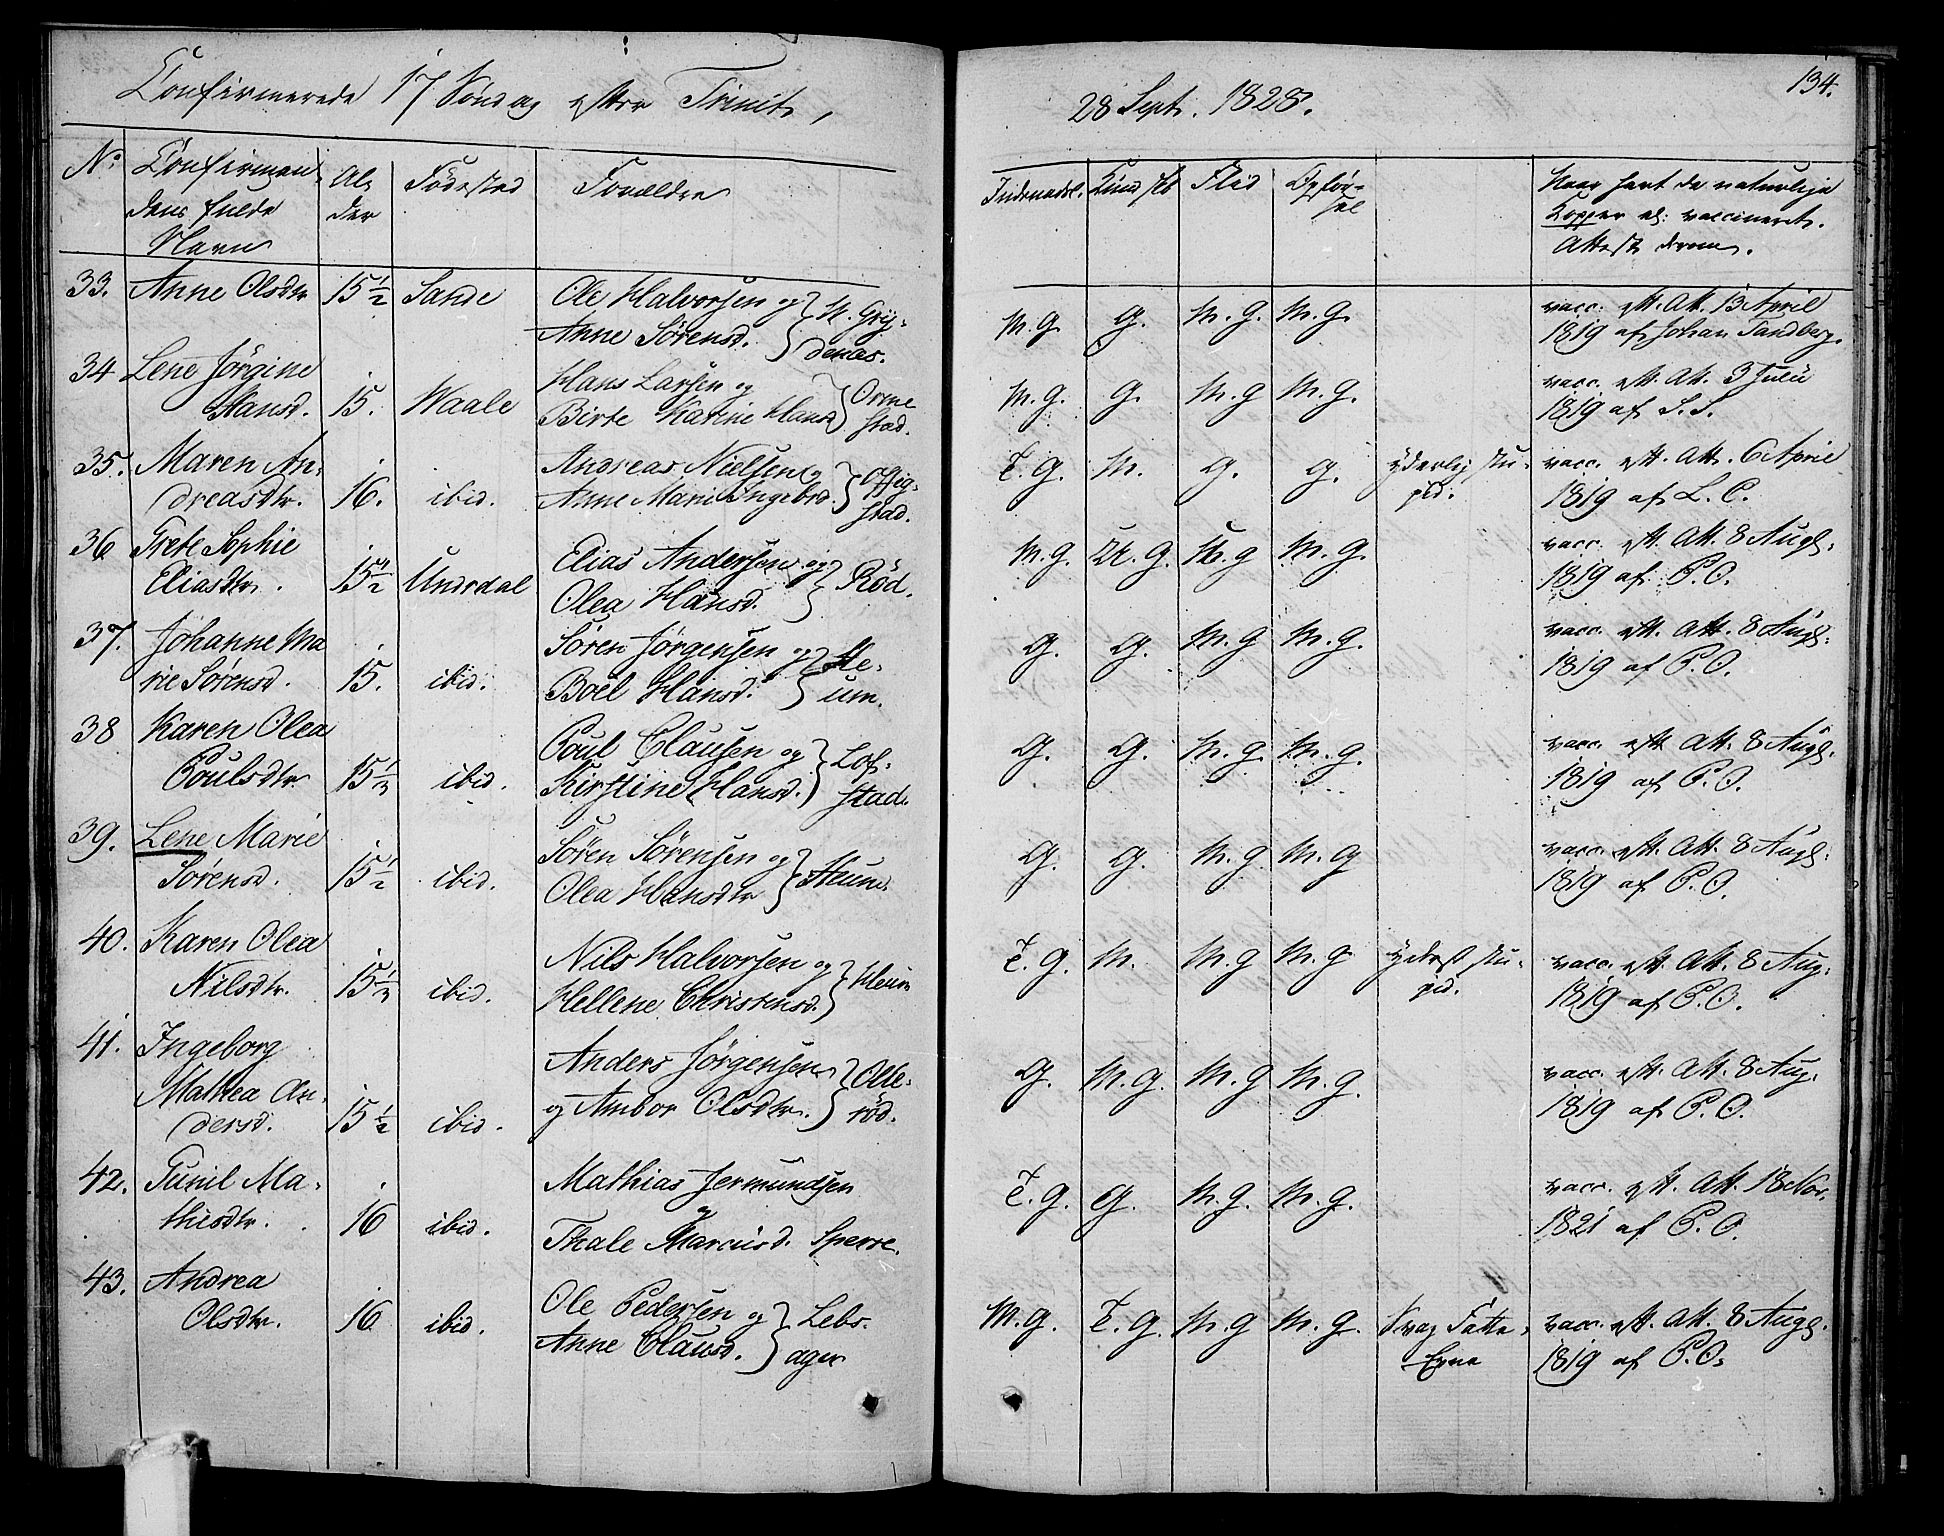 Confirmerede 17 Søndag efter Trinit,
28 Sept. 1828.
134.
No Confirman- dens fulde Navn Al- der Fødested Forældre
Indenadsl. Kundskb Flid Opfør- sel
Naar havt de naturlige
Kopper el: vaccineret.
Attest derom.
33. Anne Olsdtr 15 1/2 Sande Ole Halvorsen og
Anne Sørensd. N. Gry-
denas.
M. G. G. M. G. M. G. vacc. eft. Att. 13 April
1819 af Johan Sandberg.
34 Lene Jørgine
Hansd. 15. Waale Hans Larsen og
Birte Karine Hansd Orre
stad.
M. G. G. M. G M. G. vacc. eft. Att. 3 Julii
1819 af S. S.
35. Maren An-
dreasdtr. 16. ibid. Andreas Nielsen og
Anne Marie Ingebrd.
stad.
T. G. M. G. G. yderlig stu-
pid. vacc. eft. Att. 6 April
1819 af L. C.
36 Grete Sophie
Eliasdtr. 15 1/2 Undrdal Elias Andersen og
Olea Hansd. Rød.
M. G. M. G. M. G M. G. vacc. eft. Att. 8 Augs.
1819 af P. O.
37. Johanne Ma
rie Sørensd. 15. ibid. Søren Jørgensen og
Boel Hansd. He-
um.
G. G. M. G M. G. vacc. eft. Att. 8 Augs.
1819 af P. O.
38 Karen Olea
Poulsdtr 15 1/2 ibid. Poul Clausen og
Kirstine Hansd. Lof-
stad.
G. G. M. G M. G. vacc. eft Att. 8 Augs.
1819 af P. O.
39. Lene Marie
Sørensd. 15 1/2 ibid. Søren Sørensen og
Olea Hansdtr Heum.
G. G. M. G M. G vacc. eft. Att. 8 Augs.
1819 af P. O.
40. Karen Olea
Nilsdtr. 15 1/2 ibid. Nils Halvorsen og
Hellene Christensd. Heum
T. G. M. M. G M. G yderst stu-
pid. vacc. eft. Att. 8 Aug.
1819 af P. O.
41. Ingeborg
Mathea An-
dersd. 15 1/2 ibid. Anders Jørgensen
og Ambor Olsdtr. Olle-
rød.
G. M. G. M. G M. G. vacc. eft. Att. 8 Aug.
1819 af P. O.
42. Gunil Ma-
thisdtr. 16 ibid. Mathias Jermundsen
og
Thale Marcusd. Sperre.
T. G. G. M. G. M. G. vacc. eft. Att. 18 Nov.
1821 af P. O.
43. Andrea
Olsdtr. 16 ibid. Ole Pedersen og
Anne Clausd. Lebs-
ager
M. G. T. G. M. G M. G. Svag Fatte-
Evne vacc. eft. Att. 8 Augs.
1819 af P. O.